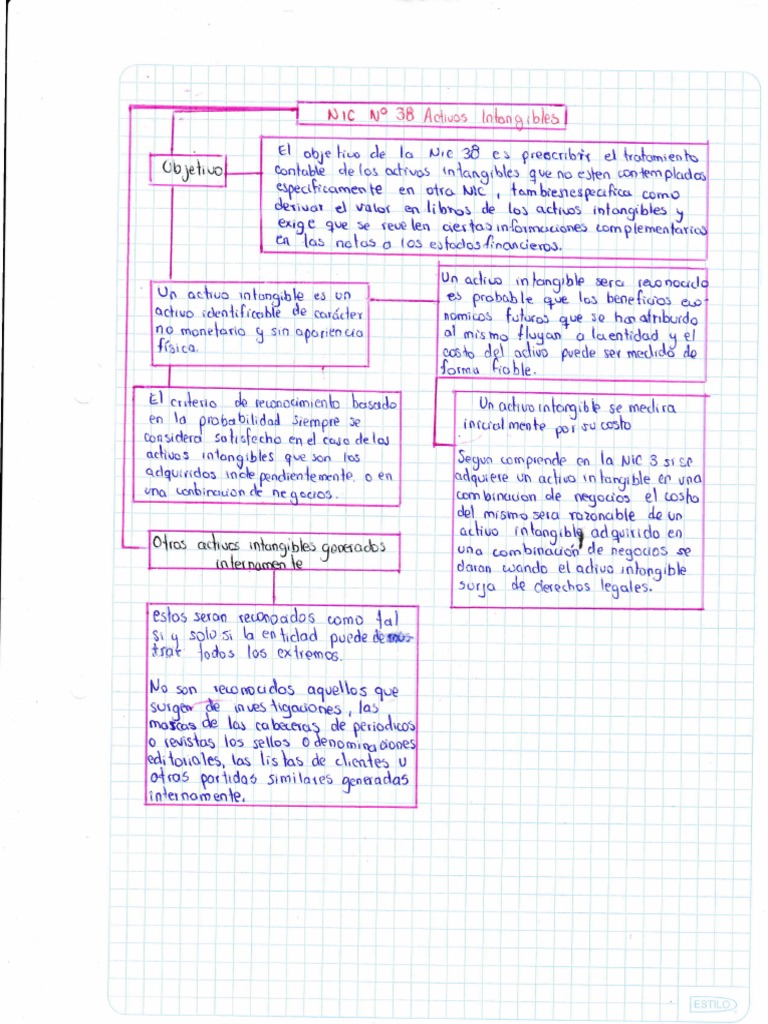 NIC Nº 38 Activos Intangibles
Objetivo
El objetivo de la Nic 38 es preescribir el tratamiento
contable de los activos intangibles que no esten contemplados
especificamente en otra NIC, tambien especifica como
derivar el valor en libros de los activos intangibles y
exige que se revelen ciertas informaciones complementarias
en las notas a los estados financieros.
Un activo intangible es un
activo identificable de carácter
no monetario y sin apariencia
física.
Un activo intangible sera reconocido
es probable que los beneficios eco-
nomicos futuros que se han atribuido
al mismo fluyan a la entidad y el
costo del activo puede ser medido de
forma fiable.
El criterio de reconocimiento basado
en la probabilidad siempre se
considera satisfecho en el caso de los
activos intangibles que son los
adquiridos independientemente, o en
una conbinacion de negocios.
Un activo intangible se medira
inicialmente por su costo
Segun comprende en la NIC 3 si se
adquiere un activo intangible en una
combinacion de negocios el costo
del mismo sera razonable de un
activo intangible adquirido en
una combinación de negocios se
daran cuando el activo intangible
surja de derechos legales.
Otros activos intangibles generados
internamente
estos seran reconocados como tal
si y solo si la entidad puede demos-
trar todos los extremos.
No son reconocidos aquellos que
surgen de investigaciones, las
marcas de las cabeceras de periodicos
o revistas los sellos o denominaciones
editoriales, las listas de clientes u
otras partidas similares generadas
internamente.
ESTILO